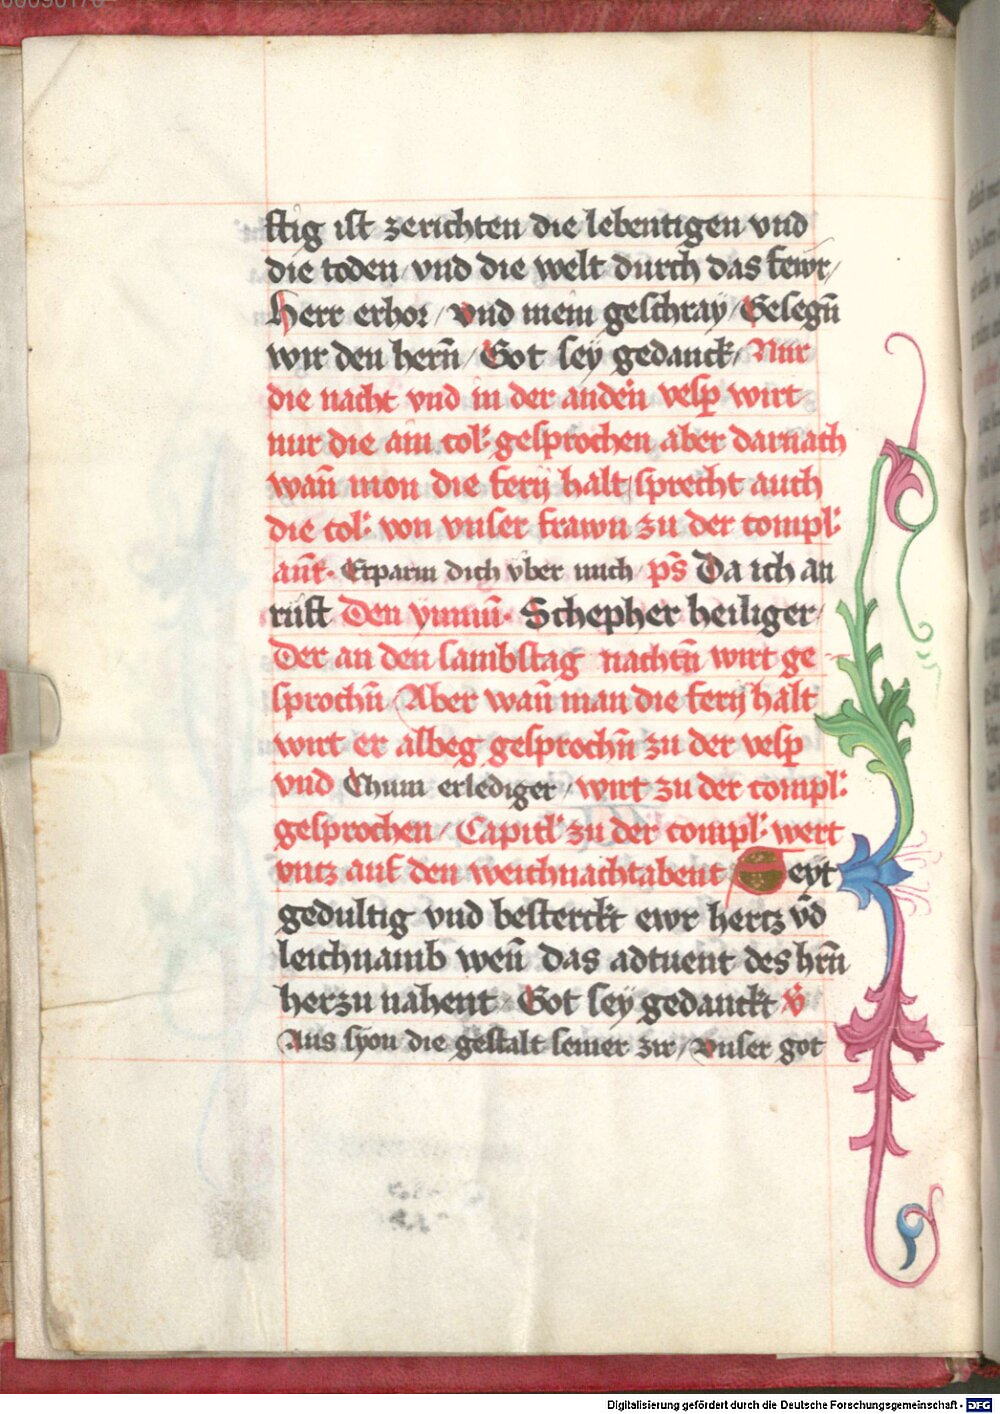 00090170
ftig ist zerichten die lebentigen vnd
die toden / vnd die welt durch das fewr /
Herr erhor / vnd mein geschray / Gesegn̄
wir den hern̄ / Got sey gedanck / Nur
die nacht vnd in der anden vesp wirt
nur die ain col: gesprochen aber darnach
wan̄ mon die ferij halt sprecht auch
die col: von vnser frawn zu der compl:
an̄t. Erparm dich vber mich / ps̄ Da ich an
rüft Den ymn̄. Schepher heiliger /
Der an den sambstag nachtn̄ wirt ge
sprochn̄ / Aber wan̄ man die ferij halt
wirt er albeg gesprochn̄ zu der vesp
vnd Chum erlediger / wirt zu der compl:
gesprochen / Capitl: zu der compl: wert
vntz auf den weichnachtabent / Seyt
gedultig vnd besterckt ewr hertz vn̄d
leichnamb wen̄ das aduent des hrn̄
herzu nahent. Got sey gedanckt v̄
Aus syon die gestalt seiner zir / vnser got
Digitalisierung gefördert durch die Deutsche Forschungsgemeinschaft - DFG